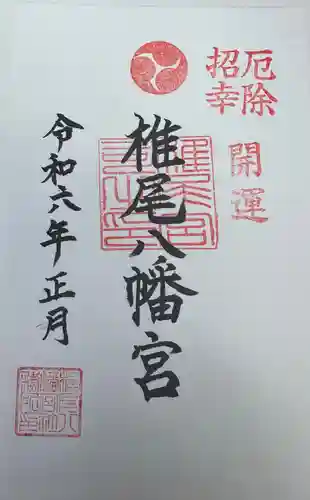 厄除
招幸
開運
椎尾八幡宮
令和六年正月